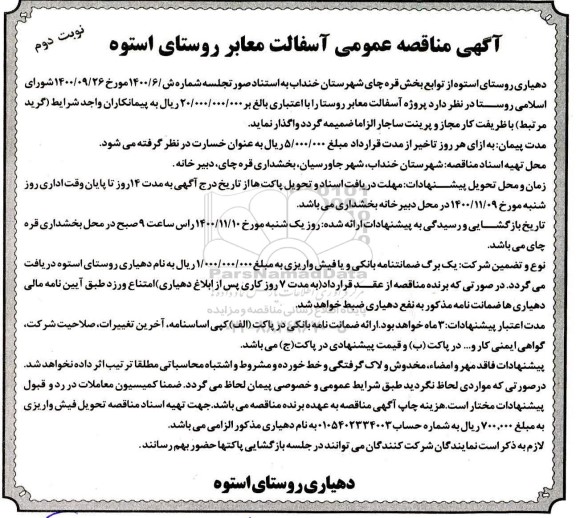 نوبت دوم
آگهی مناقصه عمومی آسفالت معابر روستای استوه
دهیاری روستای استوه از توابع بخش قره چای شهرستان خنداب به استناد صورتجلسه شماره ش/۱۴۰۰/۶ مورخ ۱۴۰۰/۰۹/۲۶ شورای
اسلامی روستا در نظر دارد پروژه آسفالت معابر روستا را با اعتباری بالغ بر ۲۰/۰۰۰/۰۰۰/۰۰۰ ریال به پیمانکاران واجد شرایط (گرید
مرتبط) با ظریفت کار مجاز و پرینت ساجار الزاما ضمیمه گردد واگذار نماید.
مدت پیمان: به ازای هر روز تاخیر از مدت قرارداد مبلغ ۵/۰۰۰/۰۰۰ ریال به عنوان خسارت در نظر گرفته می شود.
محل تهیه اسناد مناقصه: شهرستان خنداب، شهر جاورسیان، بخشداری قره چای، دبیر خانه.
زمان و محل تحویل پیشنهادات: مهلت دریافت اسناد و تحویل پاکت ها از تاریخ درج آگهی به مدت ۱۴ روز تا پایان وقت اداری روز
شنبه مورخ ۱۴۰۰/۱۱/۰۹ در محل دبیر خانه بخشداری می باشد.
تاریخ بازگشایی و رسیدگی به پیشنهادات ارائه شده: روز یک شنبه مورخ ۱۴۰۰/۱۱/۱۰ راس ساعت ۹ صبح در محل بخشداری قره
چای می باشد.
نوع و تضمین شرکت: یک برگ ضمانتنامه بانکی و یا فیش واریزی به مبلغ ۱/۰۰۰/۰۰۰/۰۰۰ ریال به نام دهیاری روستای استوه دریافت
می گردد. در صورتی که برنده مناقصه از عقد قرارداد (به مدت ۷ روز کاری پس از ابلاغ دهیاری) امتناع ورزد طبق آیین نامه مالی
دهیاری ها ضمانت نامه مذکور به نفع دهیاری ضبط خواهد شد.
مدت اعتبار پیشنهادات: ۳ ماه خواهد بود. ارائه ضمانت نامه بانکی در پاکت (الف) کپی اساسنامه، آخرین تغییرات، صلاحیت شرکت،
گواهی ایمنی کار و... در پاکت (ب) و قیمت پیشنهادی در پاکت (ج) می باشد.
پیشنهادات فاقد مهر و امضاء، مخدوش و لاک گرفتگی و خط خورده و مشروط و اشتباه محاسباتی مطلقا ترتیب اثر داده نخواهد شد.
در صورتی که مواردی لحاظ نگردید طبق شرایط عمومی و خصوصی پیمان لحاظ می گردد. ضمنا کمیسیون معاملات در رد و قبول
پیشنهادات مختار است. هزینه چاپ آگهی مناقصه به عهده برنده مناقصه می باشد. جهت تهیه اسناد مناقصه تحویل فیش واریزی
به مبلغ ۷۰۰,۰۰۰ ریال به شماره حساب ۰۱۰۵۴۰۲۳۳۴۰۰۳ به نام دهیاری مذکور الزامی می باشد.
لازم به ذکر است نمایندگان شرکت کنندگان می توانند در جلسه بازگشایی پاکتها حضور بهم رسانند.
دهیاری روستای استوه
ParsNamadData